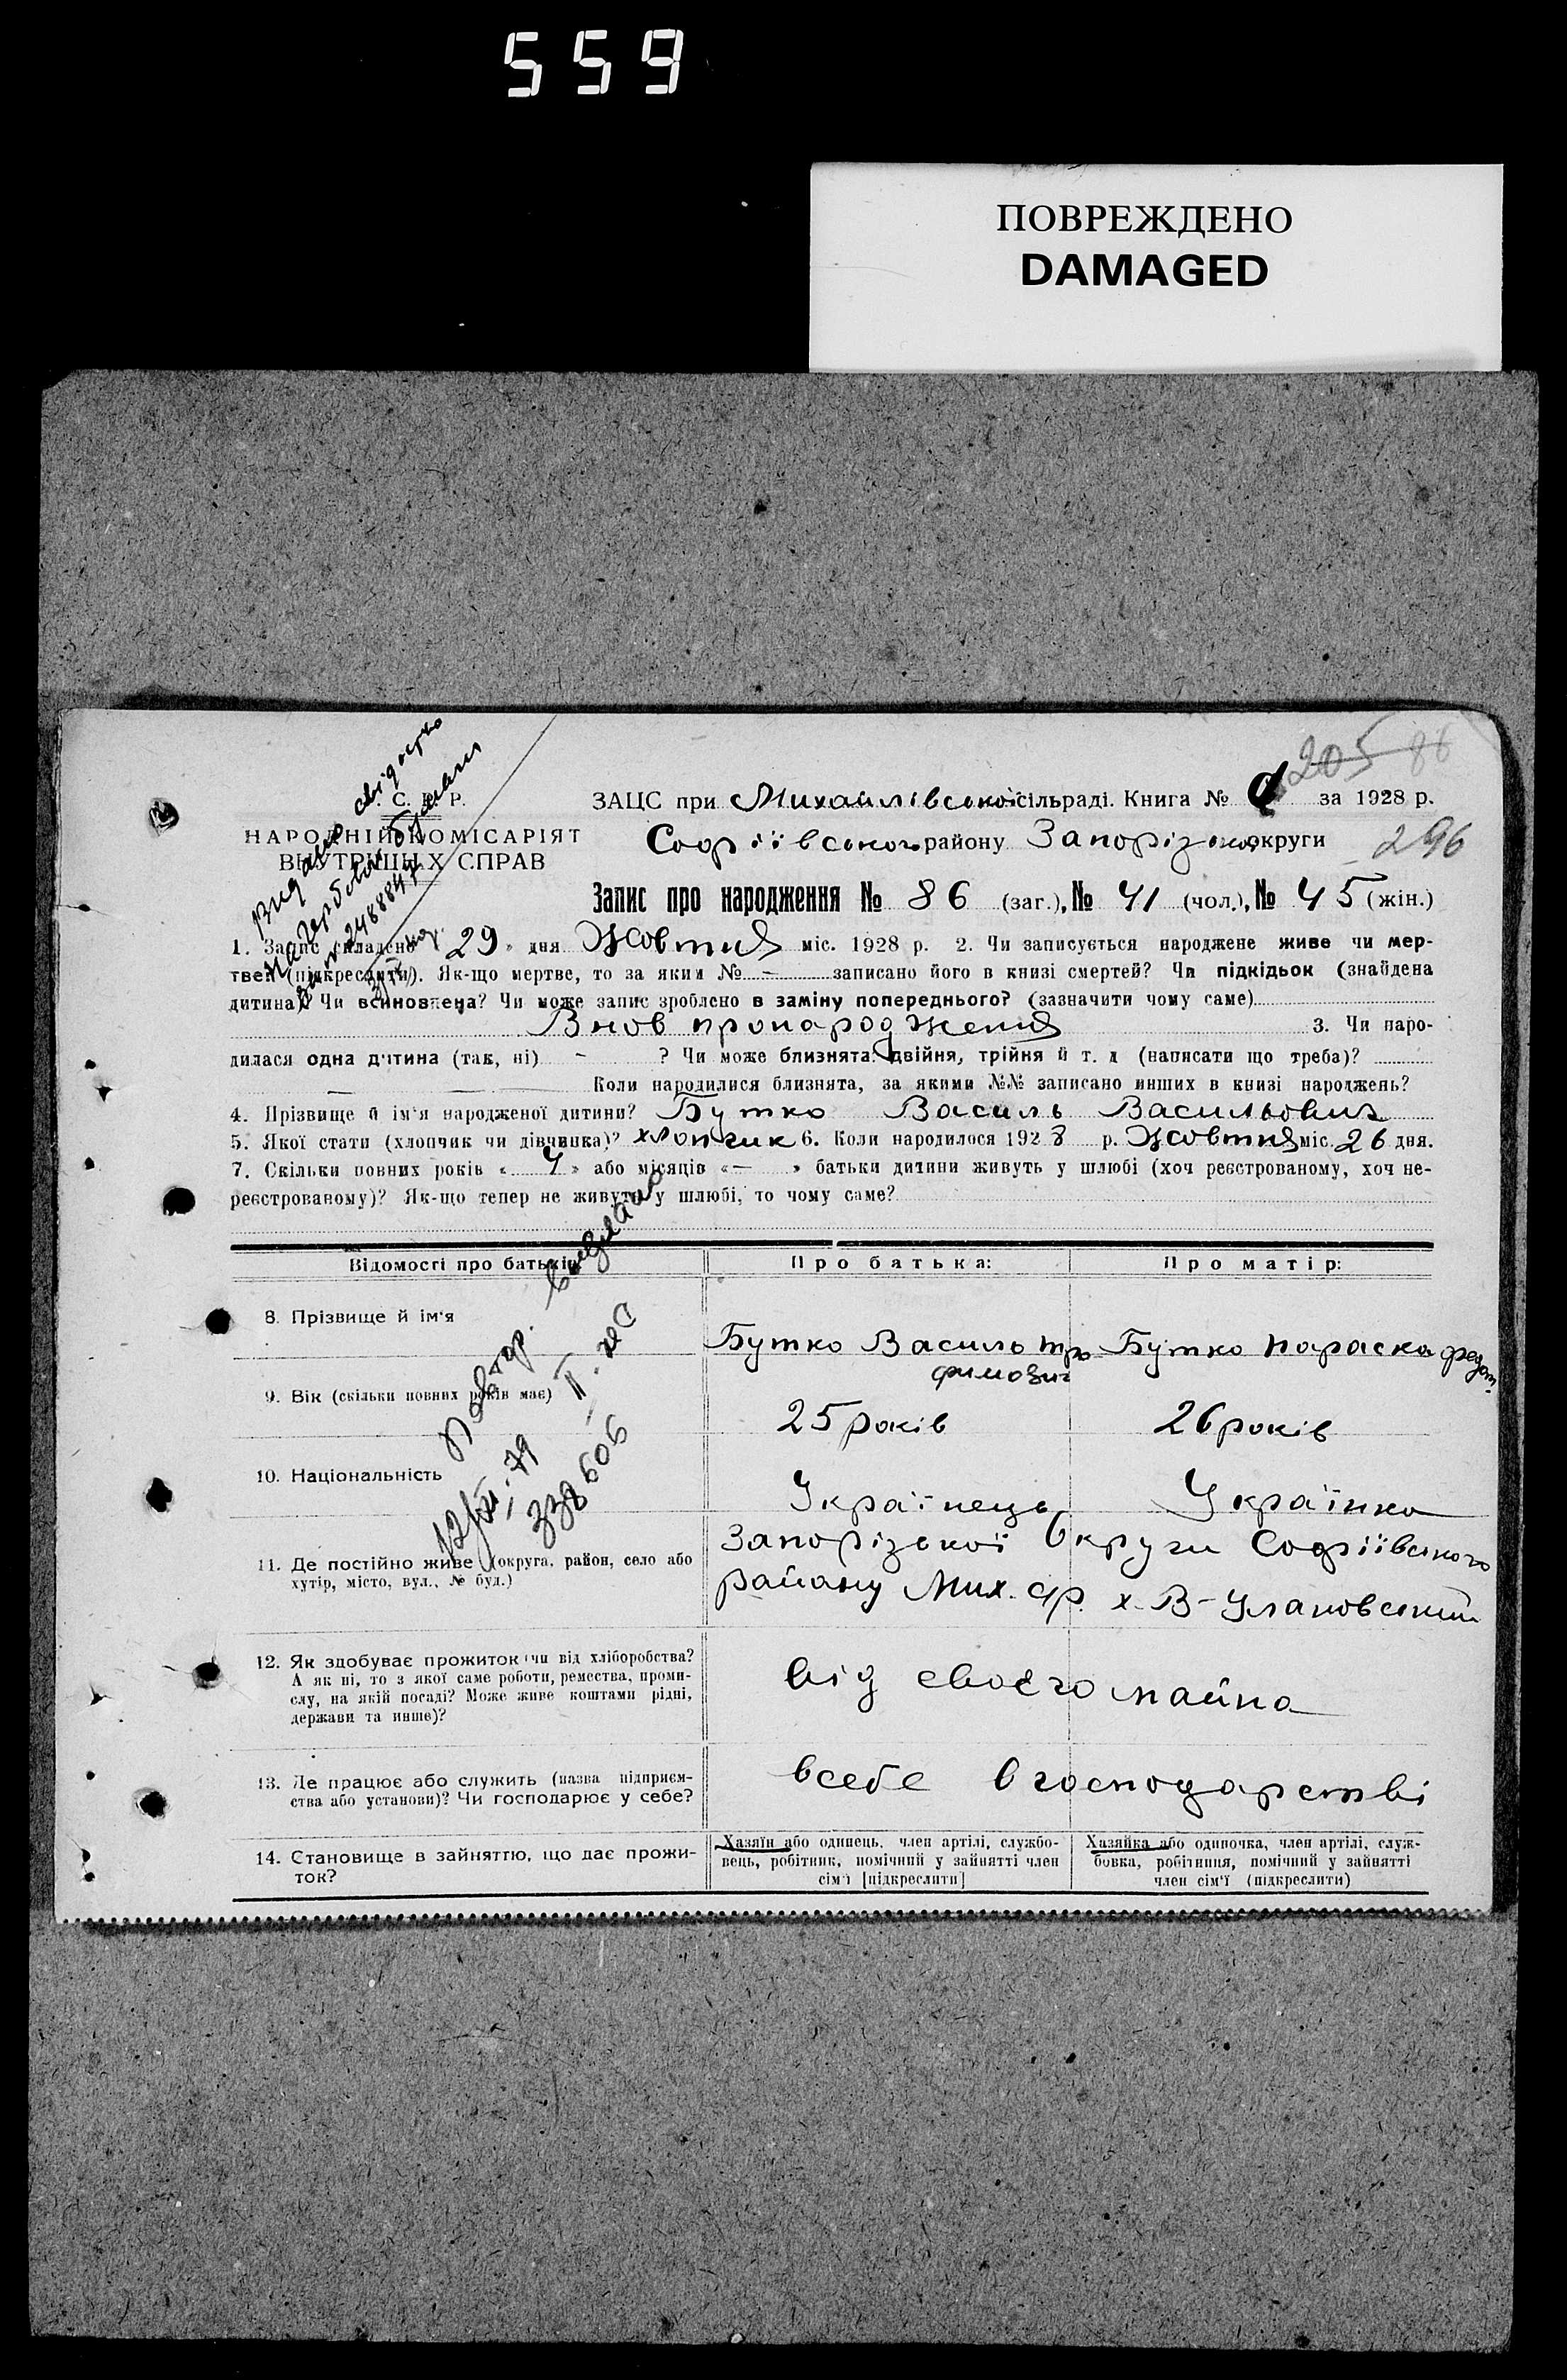 559
ПОВРЕЖДЕНО
DAMAGED
205 86
С. Р. Р.
НАРОДНІЙ КОМІСАРІЯТ
ВНУТРІШНІХ СПРАВ
видано свідоцтво
на гербовій бумазі
ЗАЦС при Михайлівській сільраді. Книга № за 1928 р.
Софіївського району Запорізької округи
296
Запис про народження № 86 (заг.), № 41 (чол.), № 45 (жін.)
1. Запис складено 29 » дня Жовтня міс. 1928 р. 2. Чи записується народжене живе чи мер-
тве (підкреслити). Як-що мертве, то за яким № – записано його в книзі смертей? Чи підкідьок (знайдена
дитина)? Чи всиновлена? Чи може запис зроблено в заміну попереднього? (зазначити чому саме)
Внов пронародження 3. Чи наро-
дилася одна дитина (так, ні) – ? Чи може близнята: двійня, трійня й т. д (написати що треба)?
Коли народилися близнята, за якими №№ записано инших в книзі народжень?
4. Прізвище й ім'я народженої дитини? Бутко Василь Васильович
5. Якої стати (хлопчик чи дівчинка)? хлопчик 6. Коли народилося 1928 р. Жовтня міс. 26 дня.
7. Скільки повних років « 4 » або місяців « — » батьки дитини живуть у шлюбі (хоч реєстрованому, хоч не-
реєстрованому)? Як-що тепер не живуть у шлюбі, то чому саме?
Відомості про батьків Про батька: Про матір:
8. Прізвище й ім'я
Бутко Василь Тро- Бутко Параска Федот.
фимович
9. Вік (скільки повних років має)
25 років 26 років
10. Національність
Українець Українка
Повтор.
12/XI-79
338606
11. Де постійно живе (округа, район, село або
хутір, місто, вул., № буд.)
Запорізької Округи Софіївського
району Мих. с/р. х. В-Улановський
12. Як здобуває прожиток (чи від хліборобства?
А як ні, то з якої саме роботи, ремества, проми-
слу, на якій посаді? Може живе коштами рідні,
держави та инше)?
від своєго майна
13. Де працює або служить (назва підприєм-
ства або установи)? Чи господарює у себе?
всебе в господарстві
14. Становище в зайняттю, що дає прожи-
ток?
Хазяїн або одинець, член артілі, службо-
вець, робітник, помічний у зайнятті член
сім'ї [підкреслити]
Хазяйка або одиночка, член артілі, служ-
бовка, робітниця, помічний у зайнятті
член сім'ї (підкреслити)